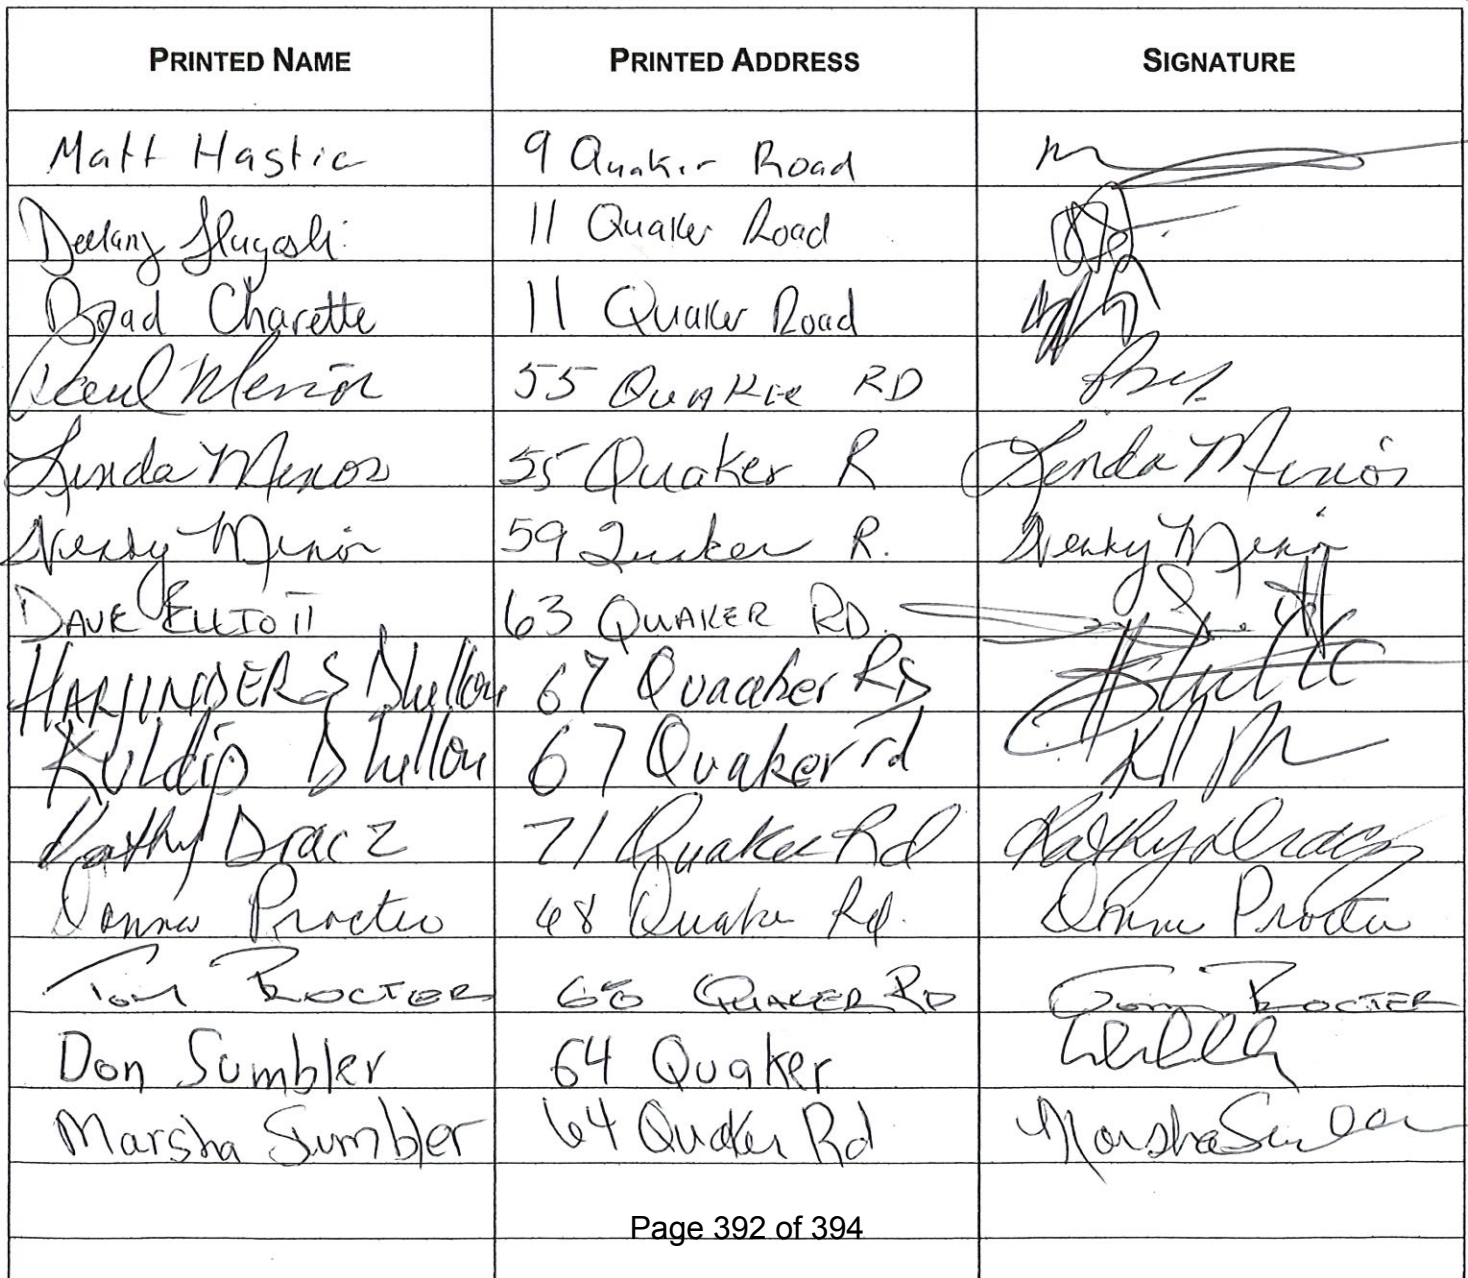 PRINTED NAME PRINTED ADDRESS SIGNATURE
Matt Hastie 9 Quaker Road
11 Quaker Road
Brad Charette 11 Quaker Road
Paul Minor 55 Quaker RD
Linda Minor 55 Quaker R Linda Minor
Minor 59 Quaker R. Minor
DAVE ELLIOTT 63 QUAKER RD.
HARJINDER S Dhillon 67 Quaaker Rd
Kuldip Dhillon 67 Quaker rd
Kathy Dracz 71 Quaker Rd Kathy Dracz
Donna Procter 68 Quaker Rd. Donna Procter
Tom PROCTER 68 QUAKER RD Tom PROCTER
Don Sumbler 64 Quaker
Marsha Sumbler 64 Quaker Rd Marsha Sumbler
Page 392 of 394